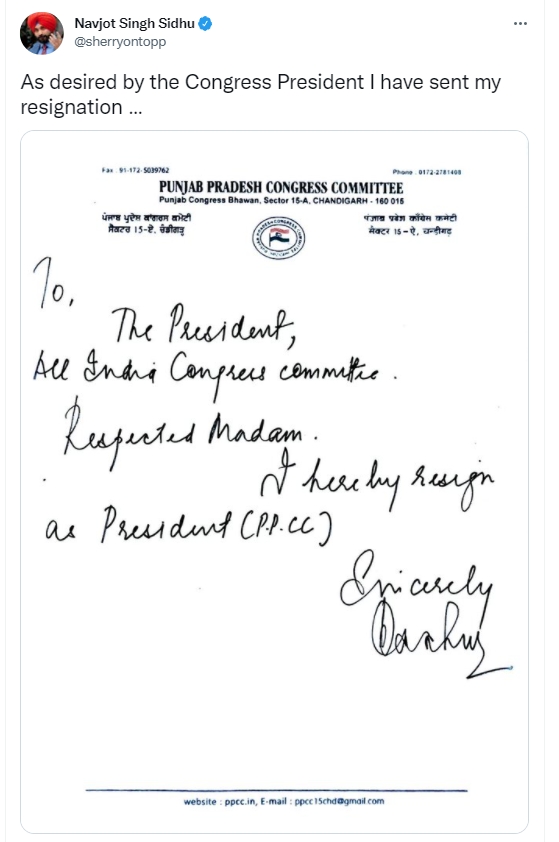 Navjot Singh Sidhu
@sherryontopp
As desired by the Congress President I have sent my
resignation ...
Fax : 91-172-5039762
Phone : 0172-2781408
PUNJAB PRADESH CONGRESS COMMITTEE
Punjab Congress Bhawan, Sector 15-A, CHANDIGARH - 160 015
ਪੰਜਾਬ ਪ੍ਰਦੇਸ਼ ਕਾਂਗਰਸ ਕਮੇਟੀ
ਸੈਕਟਰ 15-ਏ, ਚੰਡੀਗੜ੍ਹ
पंजाब प्रदेश काँग्रेस कमेटी
सेक्टर 15-ऐ, चन्डीगढ़
To,
The President,
All India Congress committee.
Respected Madam.
I hereby resign
as President (P.P.CC)
Sincerely
website : ppcc.in, E-mail : ppcc15chd@gmail.com